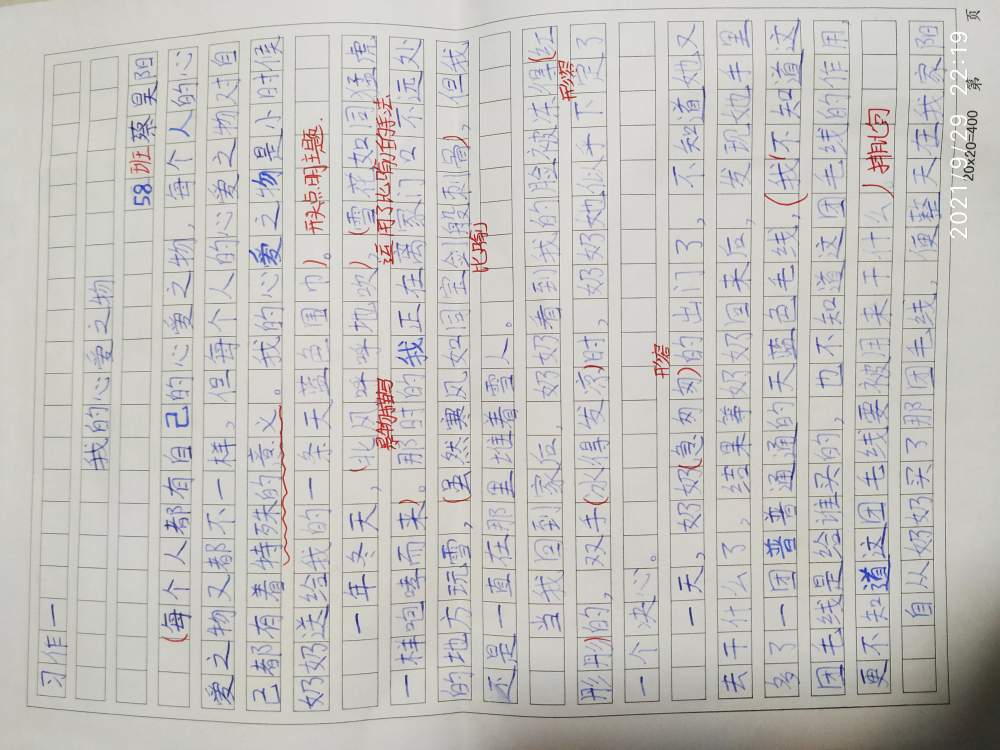 习作一
我的心爱之物
58班 蔡昊阳
(每个人都有自己的心爱之物，每个人的心
爱之物又都不一样，但每个人的心爱之物对自
己都有着特殊的意义。我的心爱之物是小时候
奶奶送给我的一条天蓝色围巾)。点明主题.
一年冬天，(北风呼呼地吹)，(雪花如同猛虎
景物描写
运用了比喻的手法
一样咆哮而来)。那时的我正在离家门口不远处
的地方玩雪，(虽然寒风如同宝剑般刺骨)，但我
比喻
还是一直在那里堆着雪人。
当我回到家后，奶奶看到我的脸被冻得(红
形容
彤彤)的，双手(冰得发凉)时，奶奶她似乎下定了
一个决心。
形容
一天，奶奶(急匆匆)的出门了，不知道她又
去干什么了，结果等奶奶回来后，发现她手里
多了一团普普通通的天蓝色毛线，(我不知道这
团毛线是给谁买的，也不知道这团毛线的作用，
更不知道这团毛线要被用来干什么)排比句
自从奶奶买了那团毛线，便整天在我家阳
20x20=400
第
页
2021/9/29 22:19